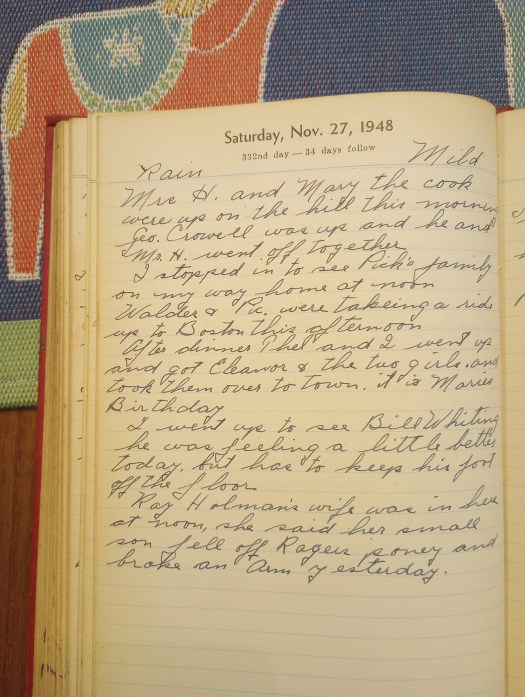 Saturday, Nov. 27, 1948
332nd day — 34 days follow
Rain Mild
Mrs H. and Mary the cook
were up on the hill this morning
Geo. Crowell was up and he and
Mr. H. went off together
I stopped in to see Pick's family
on my way home at noon
Walder & Pic. were takeing a ride
up to Boston this afternoon
After dinner Thel and I went up
and got Eleanor & the two girls. and
took them over to town. it is Maries
Birthday
I went up to see Bill Whiting
he was feeling a little better
today, but has to keep his foot
off the floor
Ray Holman's wife was in here
at noon, she said her small
son fell off Rogers poney and
broke an Arm yesterday.